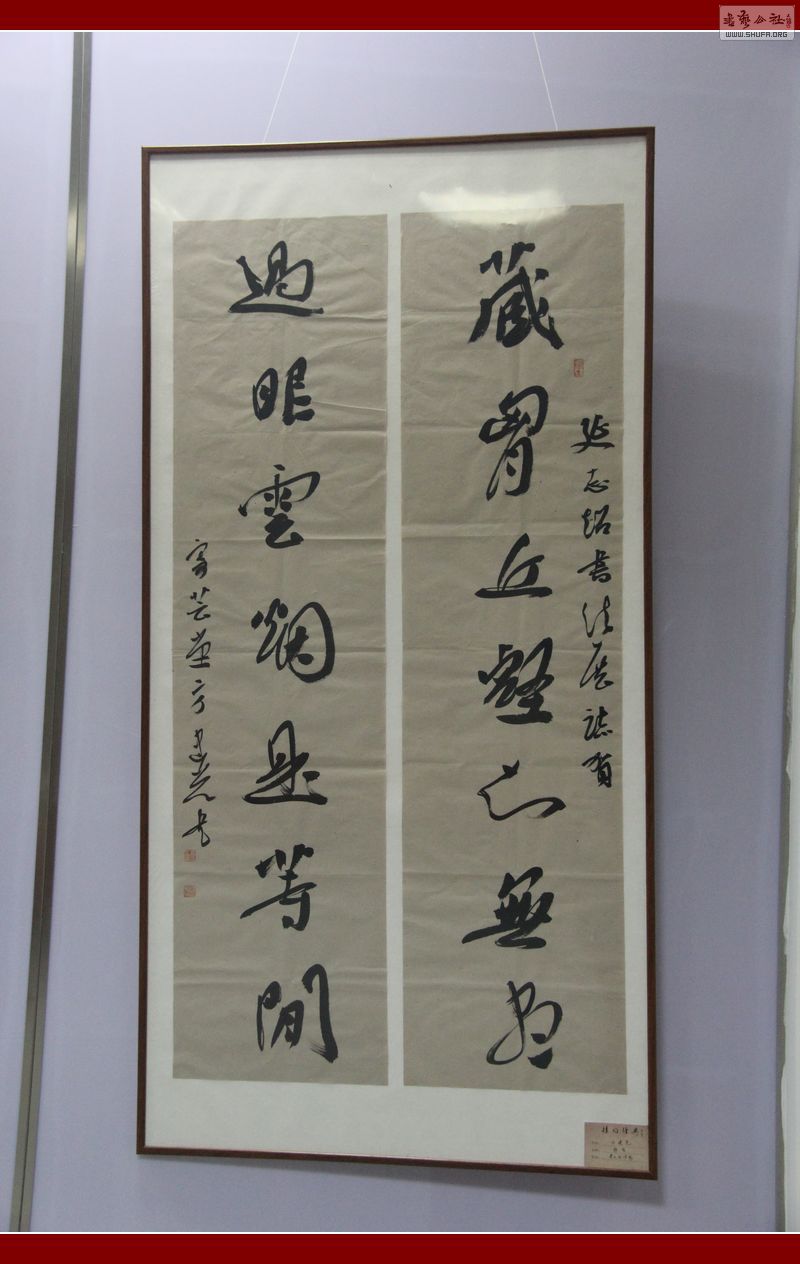 延志超書法展誌賀
藏胸丘壑知無盡
過眼雲烟是等閒
方建光书
書藝公社
WWW.SHUFA.ORG